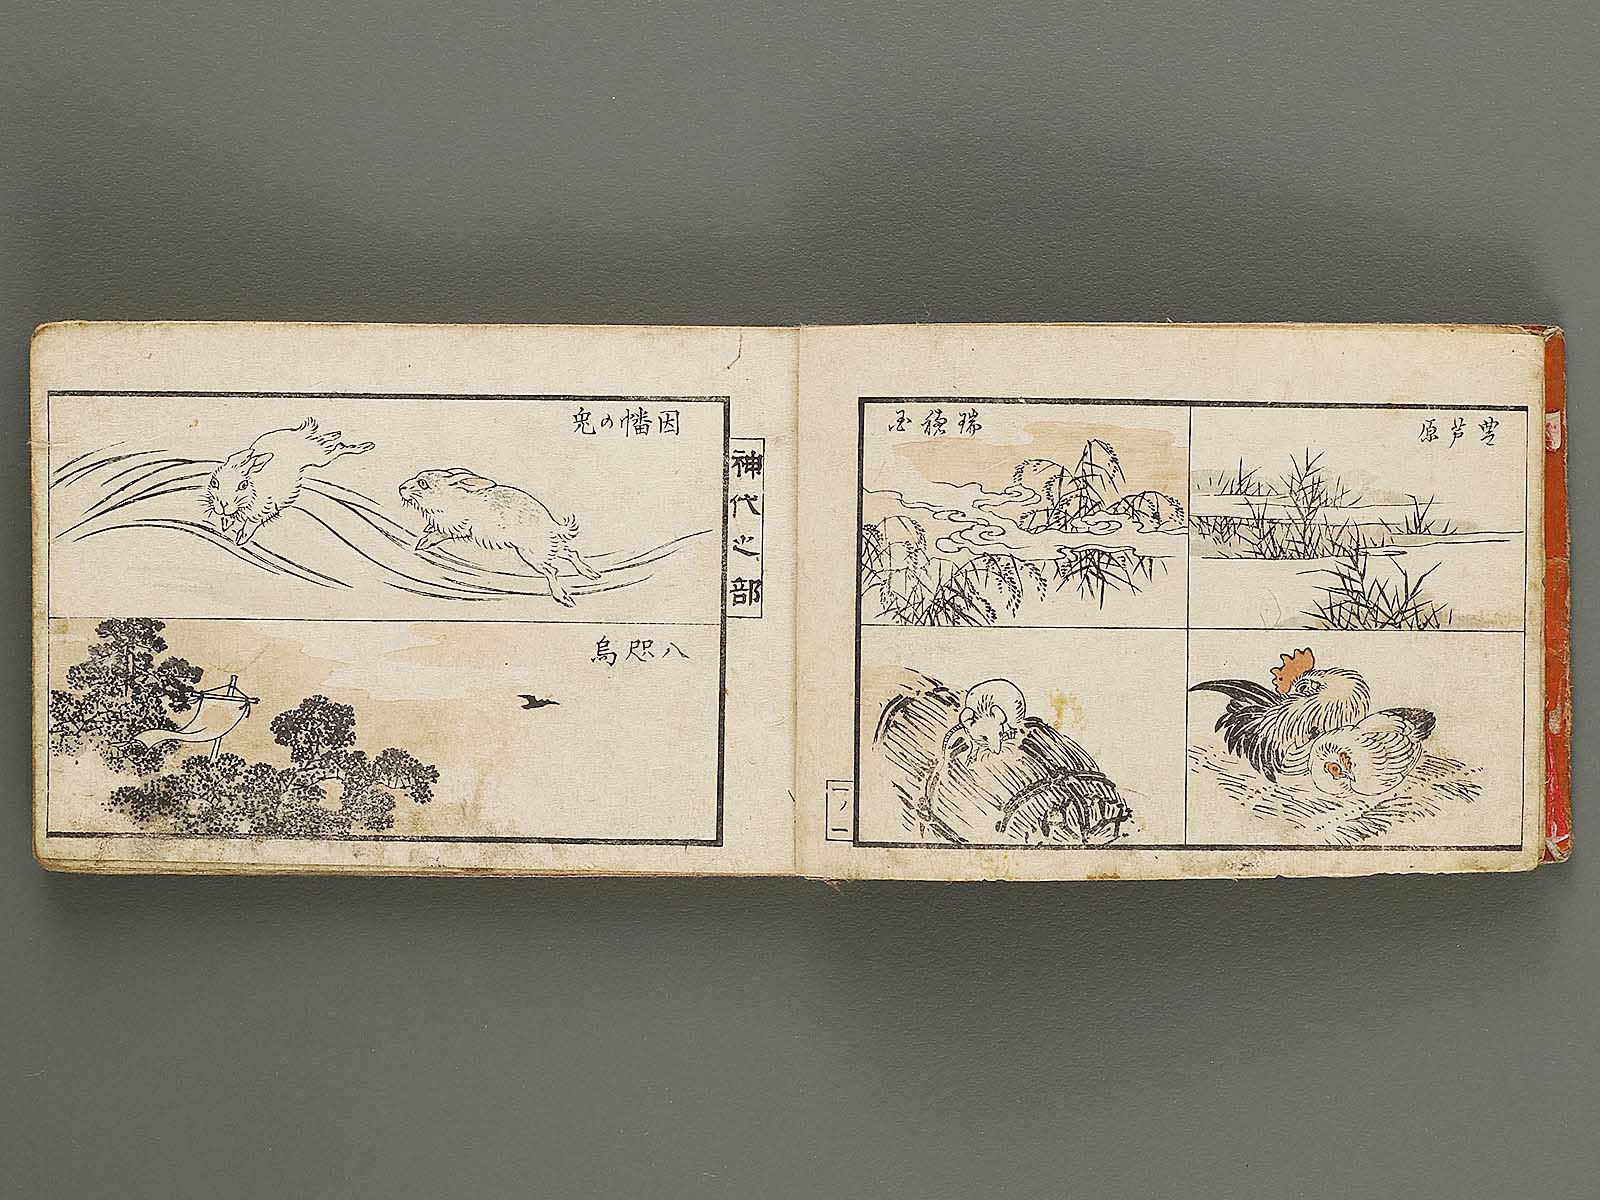 豊芦原
瑞穂国
一ノ一
神代之部
因幡の兎
八咫烏